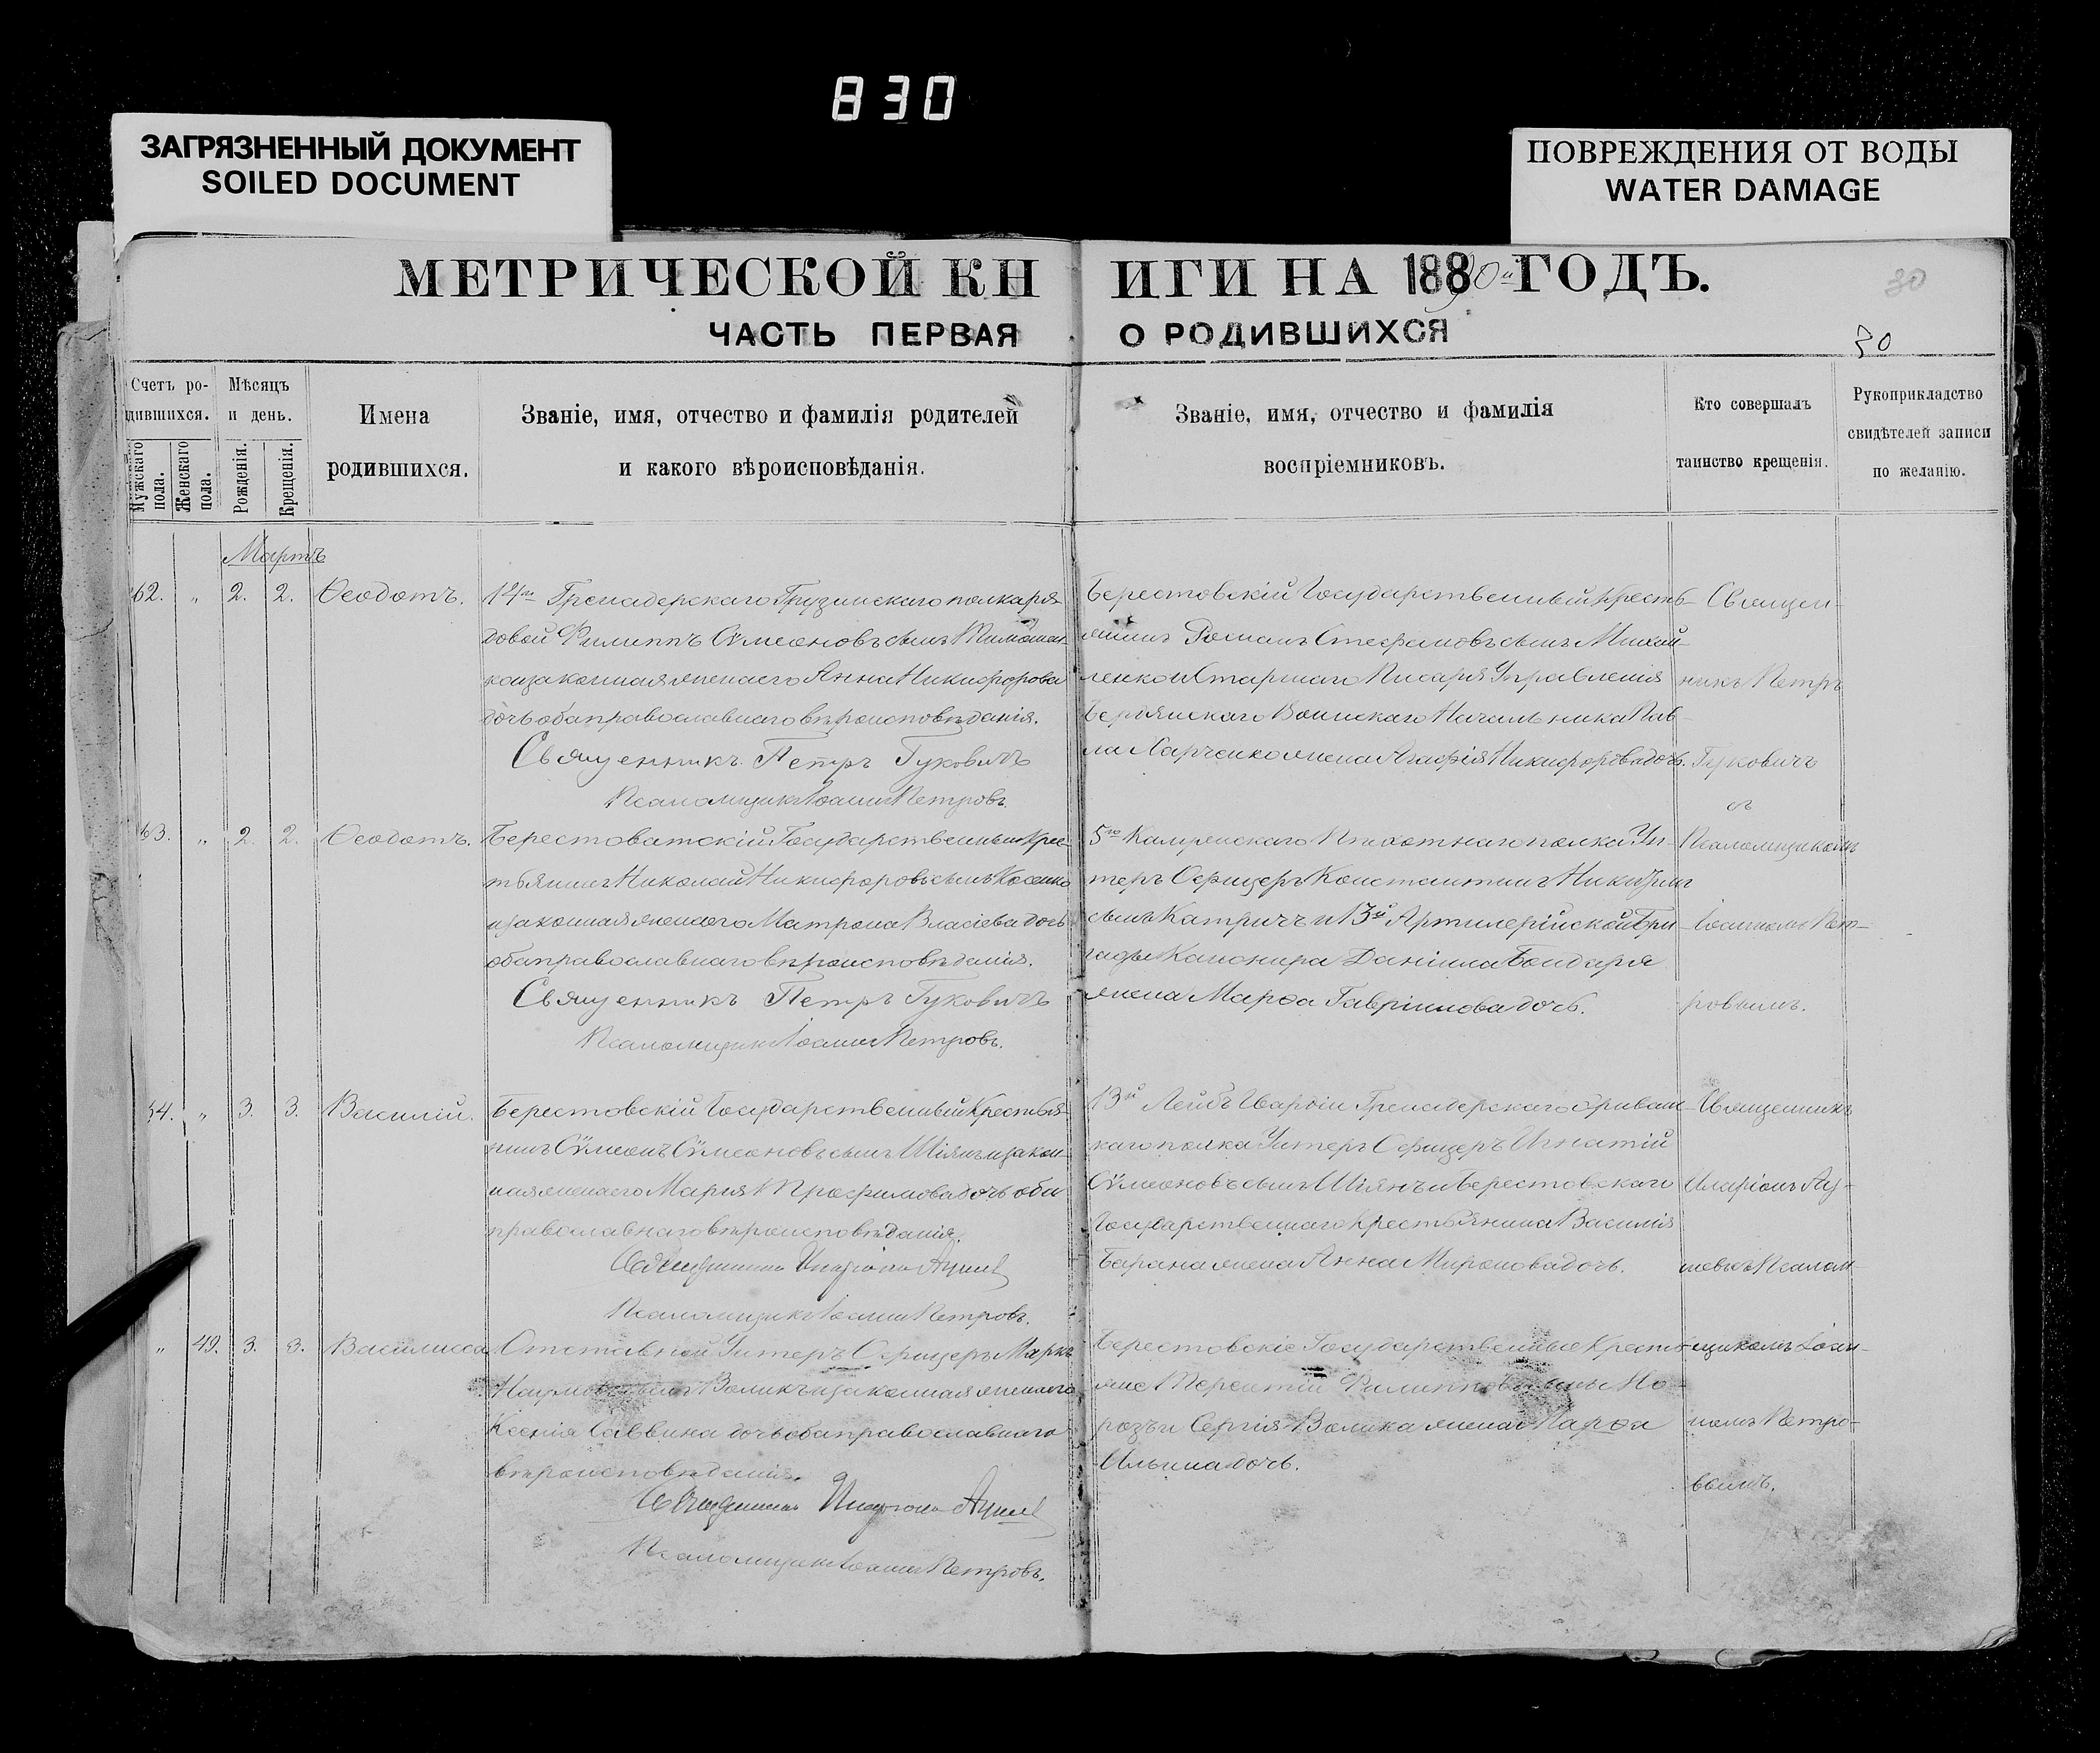 830
ЗАГРЯЗНЕННЫЙ ДОКУМЕНТ
SOILED DOCUMENT
ПОВРЕЖДЕНИЯ ОТ ВОДЫ
WATER DAMAGE
МЕТРИЧЕСКОЙ КН ИГИ НА 1890й ГОДЪ.
30
ЧАСТЬ ПЕРВАЯ О РОДИВШИХСЯ
30
Счетъ ро-
дившихся.
Мужскаго пола.
Женскаго пола.
Мѣсяцъ
и день.
Рожденія.
Крещенія.
Имена
родившихся.
Званіе, имя, отчество и фамилія родителей
и какого вѣроисповѣданія.
Званіе, имя, отчество и фамилія
воспріемниковъ.
Кто совершалъ
таинство крещенія.
Рукоприкладство
свидѣтелей записи
по желанію.
Мартъ
62. „ 2. 2. Ѳеодотъ.
14го Гренадерскаго Грузинскаго полка ря-
довой Филиппъ Сѵмеоновъ сынъ
и законная жена его Анна Никифорова
дочь оба православнаго вѣроисповѣданія.
Священникъ Петръ Гуковичъ
Псаломщикъ Іоаннъ Петровъ.
Берестовскій Государственный Кресть-
янинъ Романъ Стефановъ сынъ Михай-
ленко и Старшаго Писаря Управленія
Бердянскаго Воинскаго Начальника Пав-
ла Харченко жена Агафія Никифорова дочь.
Священ-
никъ Петръ
Гуковичъ
съ
63. „ 2. 2. Ѳеодотъ.
Берестоватскій Государственный Крес-
тьянинъ Николай Никифоровъ сынъ Косенко
и законная жена его Матрона Власіева дочь
оба православнаго вѣроисповѣданія.
Священникъ Петръ Гуковичъ
Псаломщикъ Іоаннъ Петровъ.
5го Калужскаго Пѣхотнаго полка Ун-
теръ Офицеръ Константинъ Никитинъ
сынъ Катричъ и 13й Артилерійской Бри-
гады Канонира Даніила Бондаря
жена Марѳа Гавріилова дочь.
Псаломщикомъ
Іоанномъ Пет-
ровымъ.
64. „ 3. 3. Василій.
Берестовскій Государственный Крестья-
нинъ Сѵмеонъ Сѵмеоновъ сынъ Шіянъ и закон-
ная жена его Марія Трофимова дочь оба
православнаго вѣроисповѣданія.
Священникъ Иларіонъ
Псаломщикъ Іоаннъ Петровъ.
13й Лейбъ Гвардіи Гренадерскаго Эриван-
скаго полка Унтеръ Офицеръ Игнатій
Сѵмеоновъ сынъ Шіянъ и Берестовскаго
Государственнаго Крестьянина Василія
Барана жена Анна Миронова дочь.
Священникъ
Иларіонъ
Псалом-
„ 49. 3. 3. Василисса
Отставной Унтеръ Офицеръ Маркъ
Наумовъ сынъ Воликъ и законная жена его
Ксенія Саввина дочь оба православнаго
вѣроисповѣданія.
Священникъ Иларіонъ
Псаломщикъ Іоаннъ Петровъ.
Берестовскіе Государственные Кресть-
яне Терентій Филипповъ сынъ Мо-
розъ и Сергія Волика жена Марѳа
Ильина дочь.
щикомъ Іоан-
номъ Петро-
вымъ.